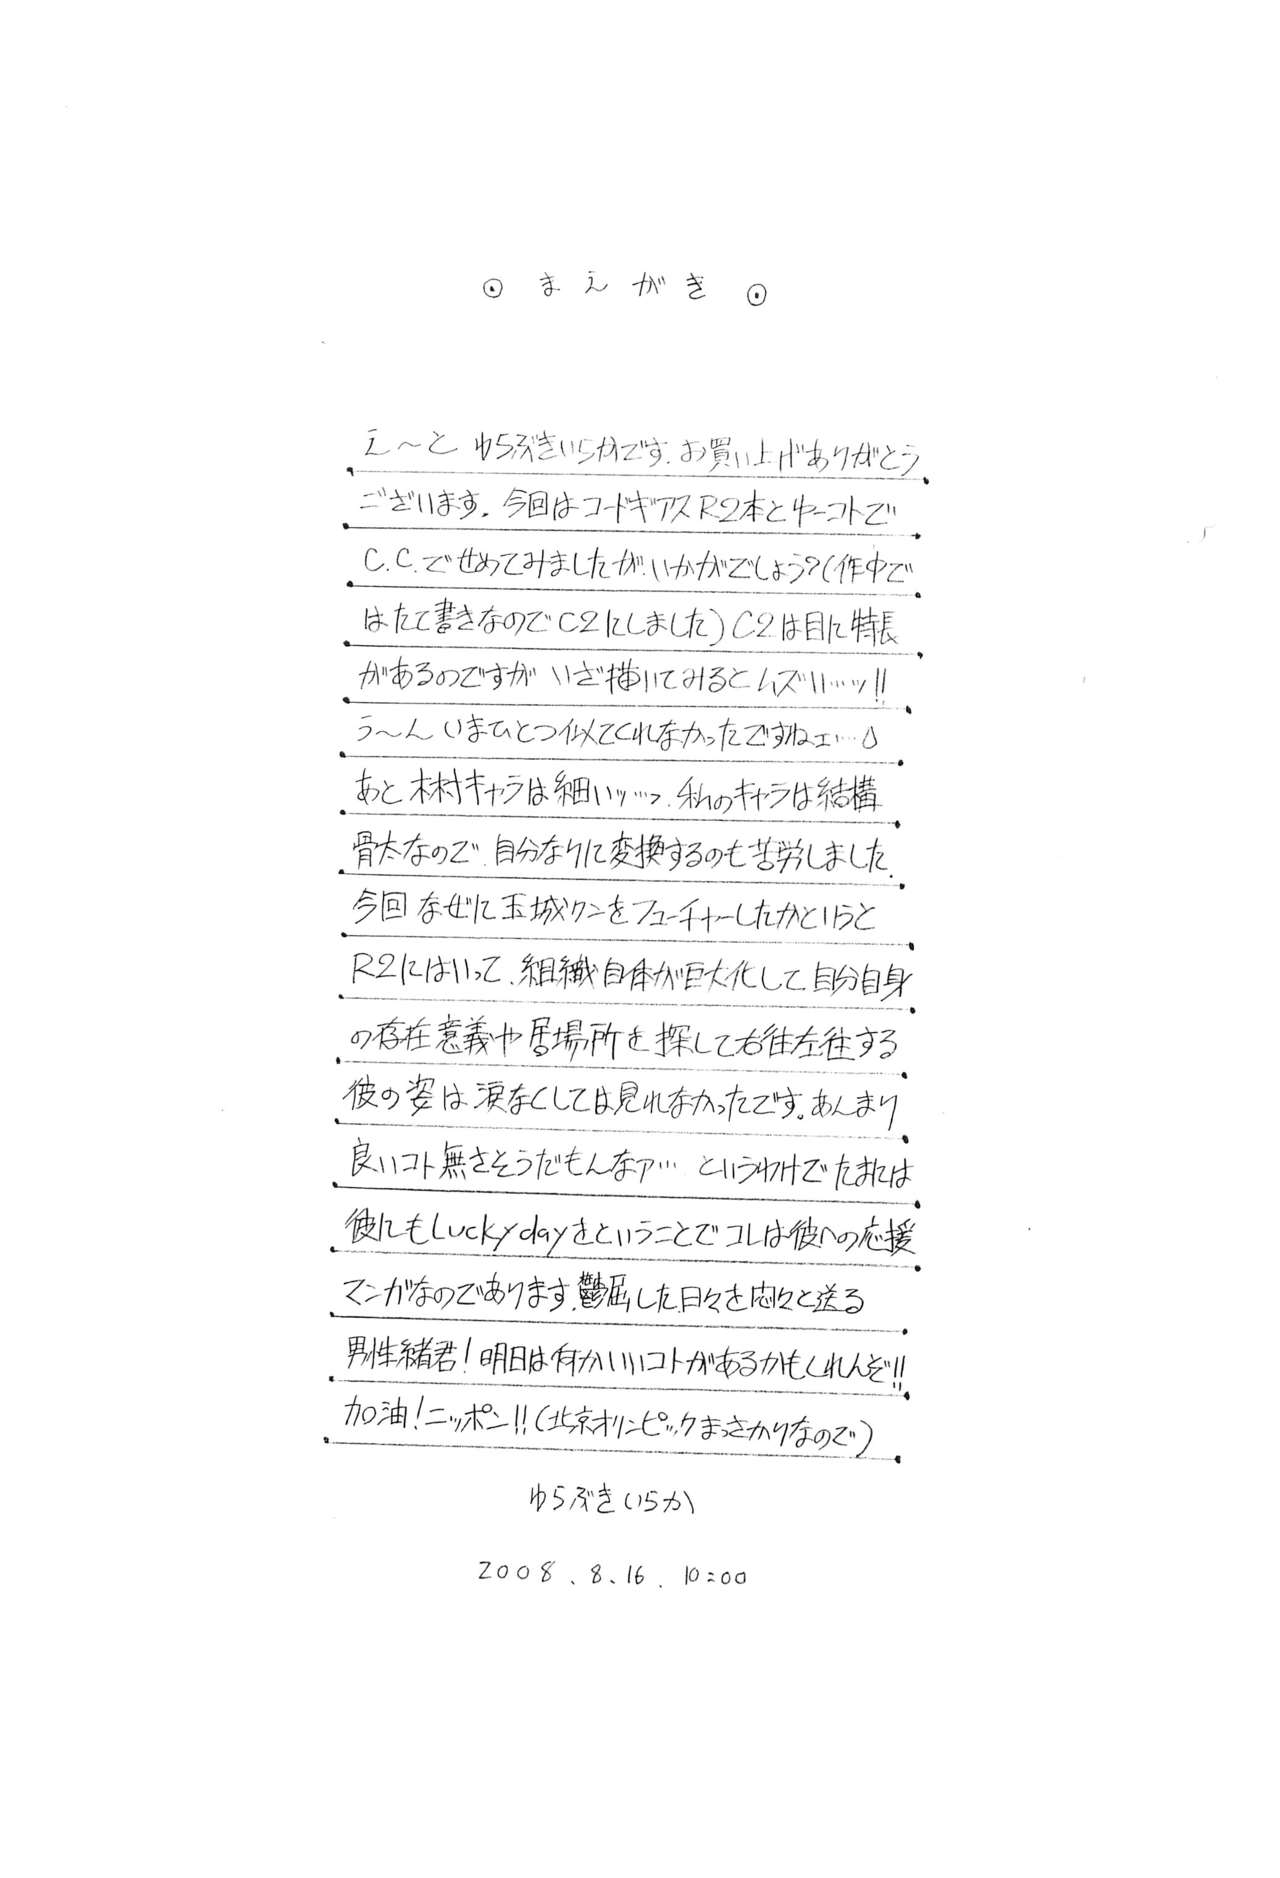 ⊙ まえがき ⊙
え〜と ゆらぶきいらかです.お買い上げありがとう
ございます. 今回はコードギアスR2本とゆーコトで
C.C.でせめてみましたが.いかがでしょう?(作中で
はたて書きなのでC2にしました)C2は目に特長
があるのですが いざ描いてみるとムズい…ッ!!
う〜ん いまひとつ似てくれなかったですねェ…
あと 木村キャラは細いッ…っ.私のキャラは結構
骨太なので.自分なりに変換するのも苦労しました.
今回 なぜに玉城クンをフューチャーしたかというと
R2にはいって.組織自体が巨大化して自分自身
の存在意義や居場所を探して右往左往する
彼の姿は涙なくしては見れなかったです。あんまり
良いコト無さそうだもんなァ… というわけでたまには
彼にもLucky dayをということでコレは彼への応援
マンガなのであります.鬱屈した日々を悶々と送る
男性緒君!明日は何かいいコトがあるかもしれんぞ!!
加油!ニッポン!!(北京オリンピックまっさかりなので)
ゆらぶきいらか
2008.8.16.10:00